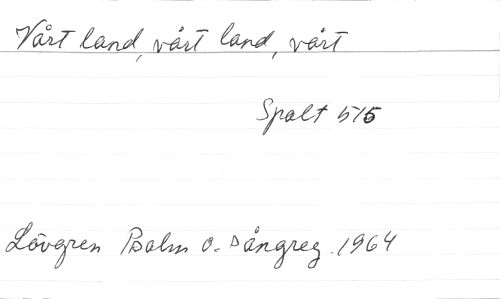 Vårt land, vårt land, vårt
Spalt 515
Lövgren Psalm o. sångreg. 1964